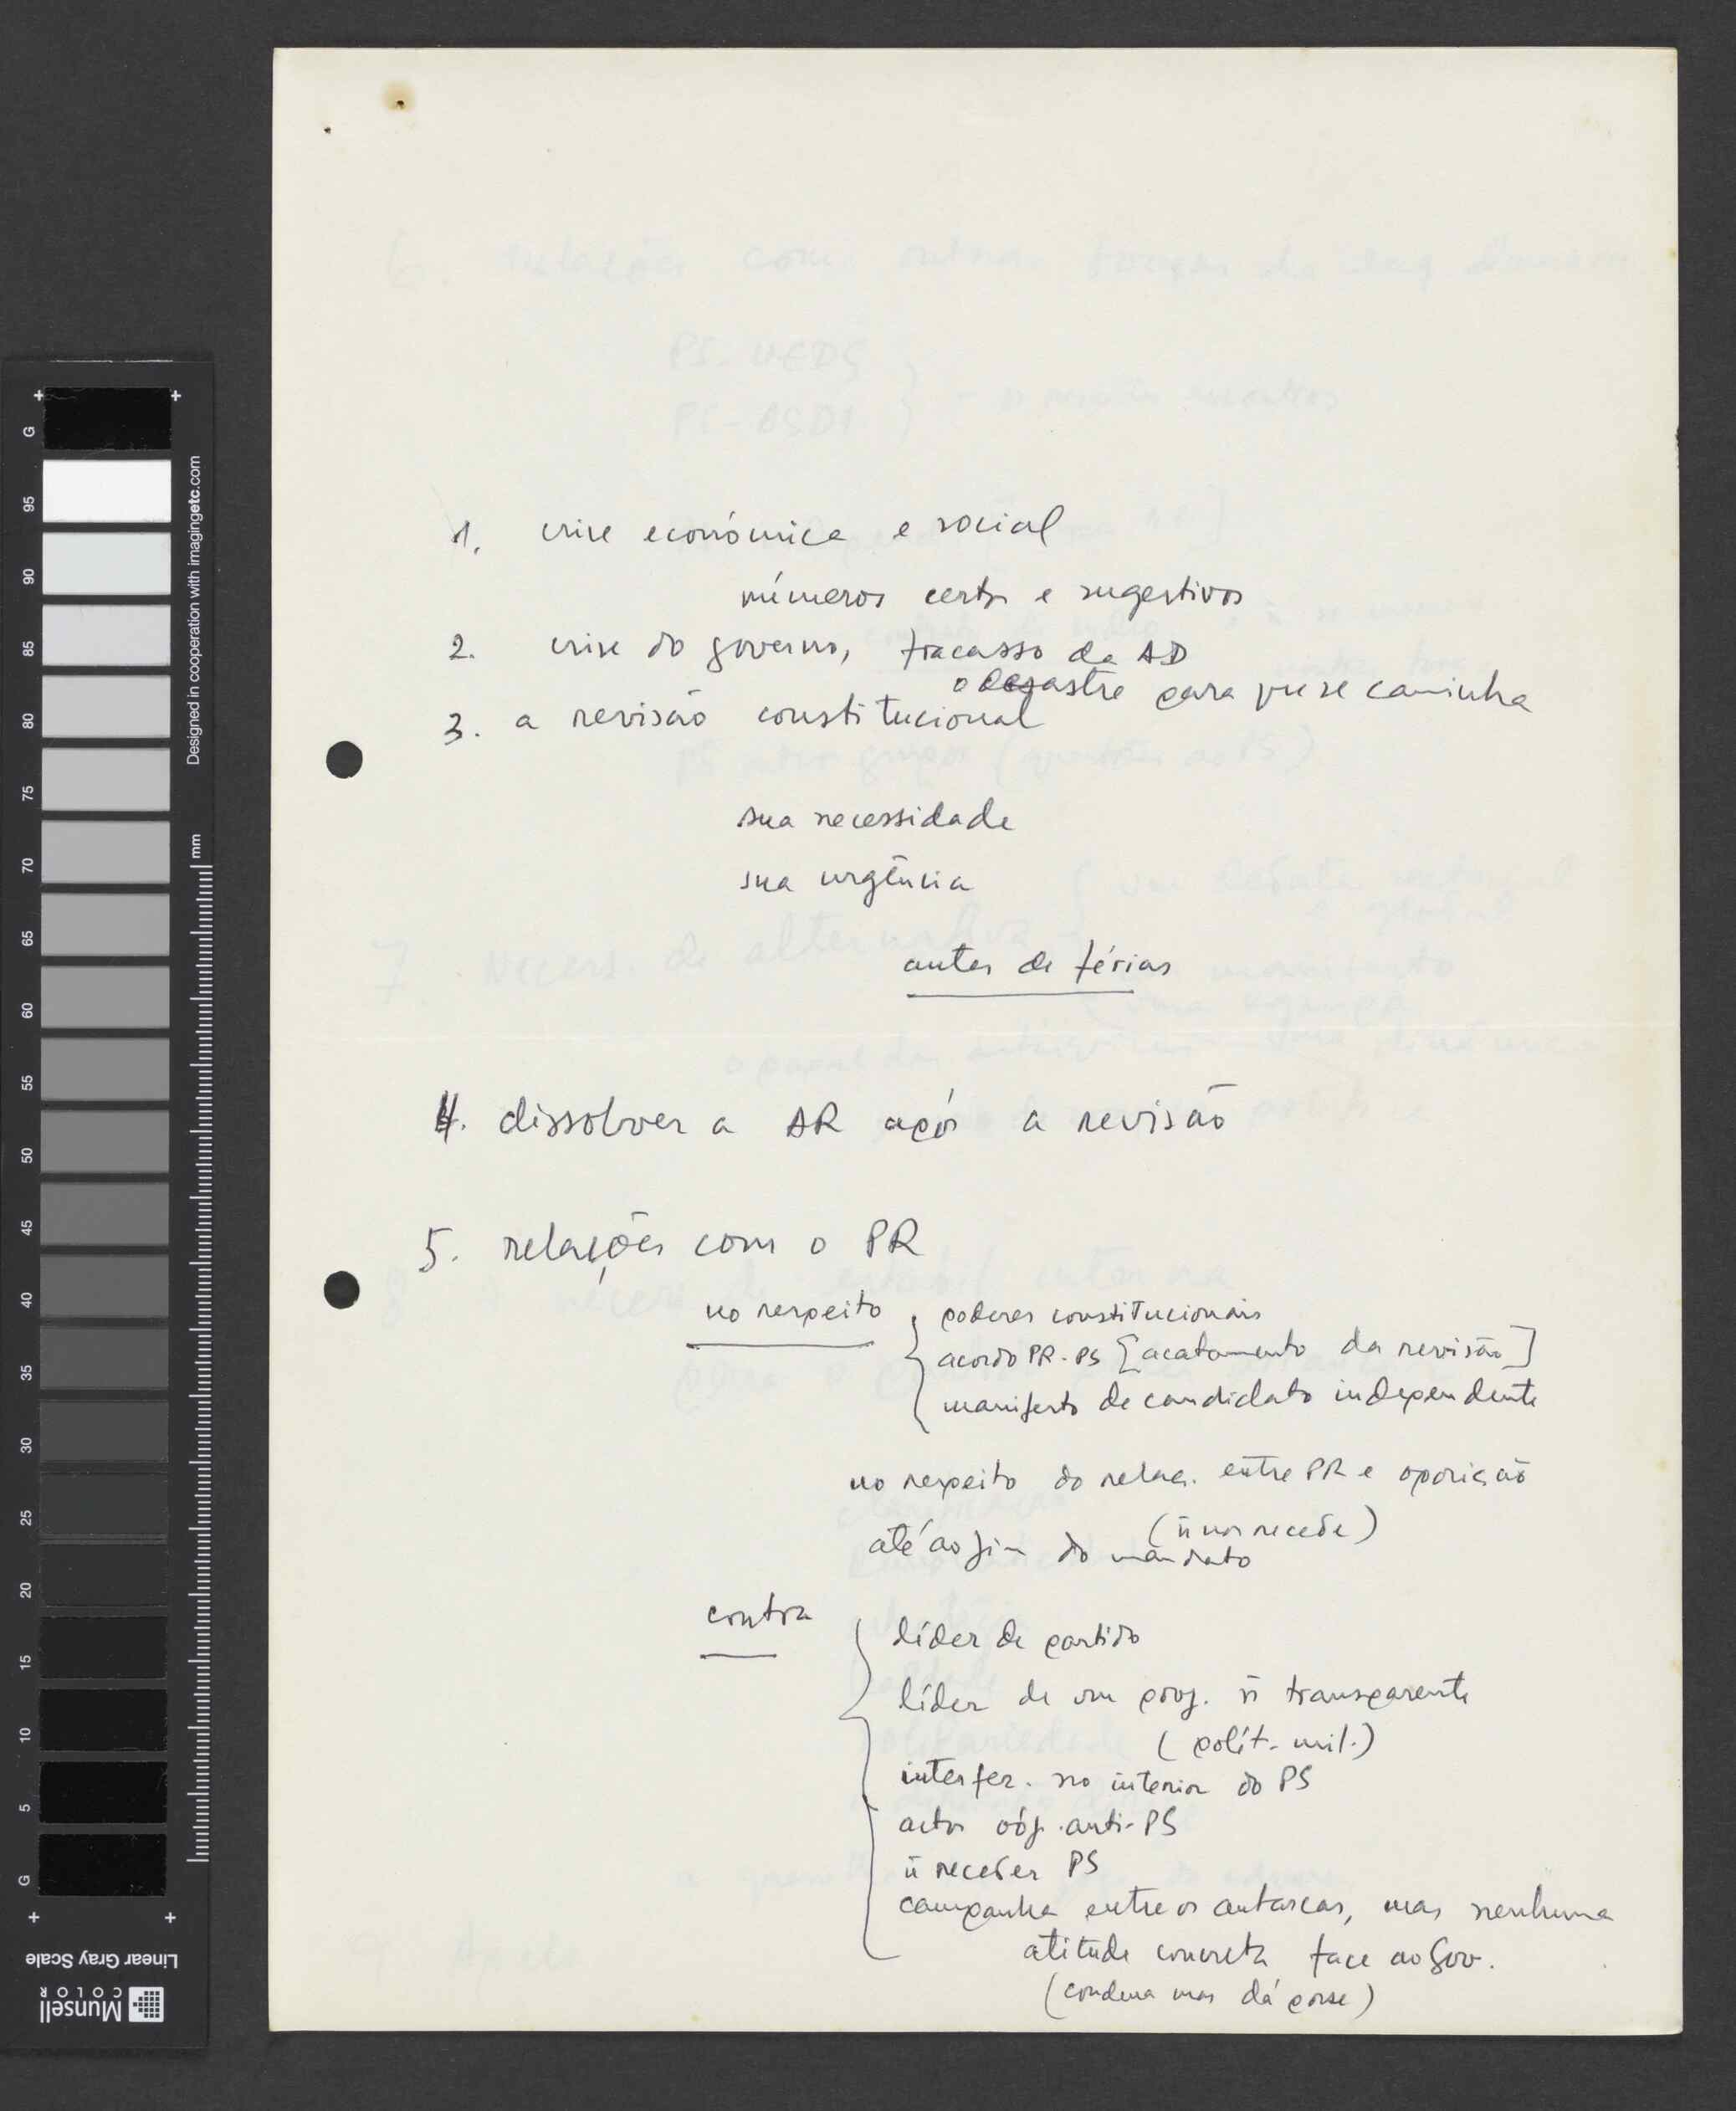 1. crise económica e social
números certos e sugestivos
2. crise do governo, fracasso da AD
o desastre para que se caminha
3. a revisão constitucional
sua necessidade
sua urgência
antes de férias
4. dissolver a AR após a revisão
5. relações com o PR
no respeito { poderes constitucionais
acordo PR-PS [acatamento da revisão]
manifesto de candidato independente
no respeito do relac. entre PR e oposição
(ñ nos recebe)
até ao fim do mandato
contra { líder de partido
líder de um proj. ñ transparente
(polít-mil.)
interfer. no interior do PS
actos obj. anti-PS
ñ receber PS
campanha entre os autarcas, mas nenhuma
atitude concreta face ao Gov.
(condena mas dá posse)
G 95 90 85 80 75 70 65 60 55 50 45 40 35 30 25 20 15 10 5 G
Designed in cooperation with imagingetc.com
mm
Linear Gray Scale
Munsell
COLOR